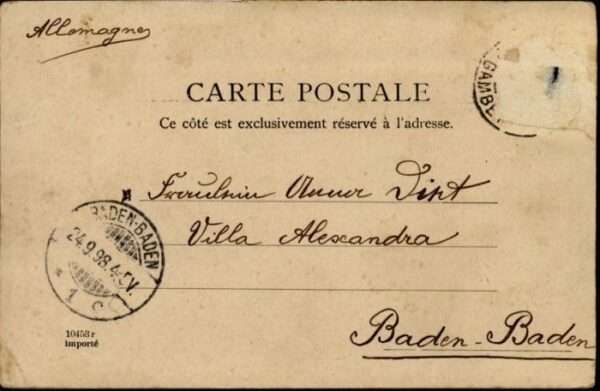 Allemagne
GAMB
CARTE POSTALE
Ce côté est exclusivement réservé à l'adresse.
Fräulein Anna Dist
Villa Alexandra
BADEN-BADEN
24.9.98.4-5V.
* 1 c
Baden-Baden
10453 r
importé